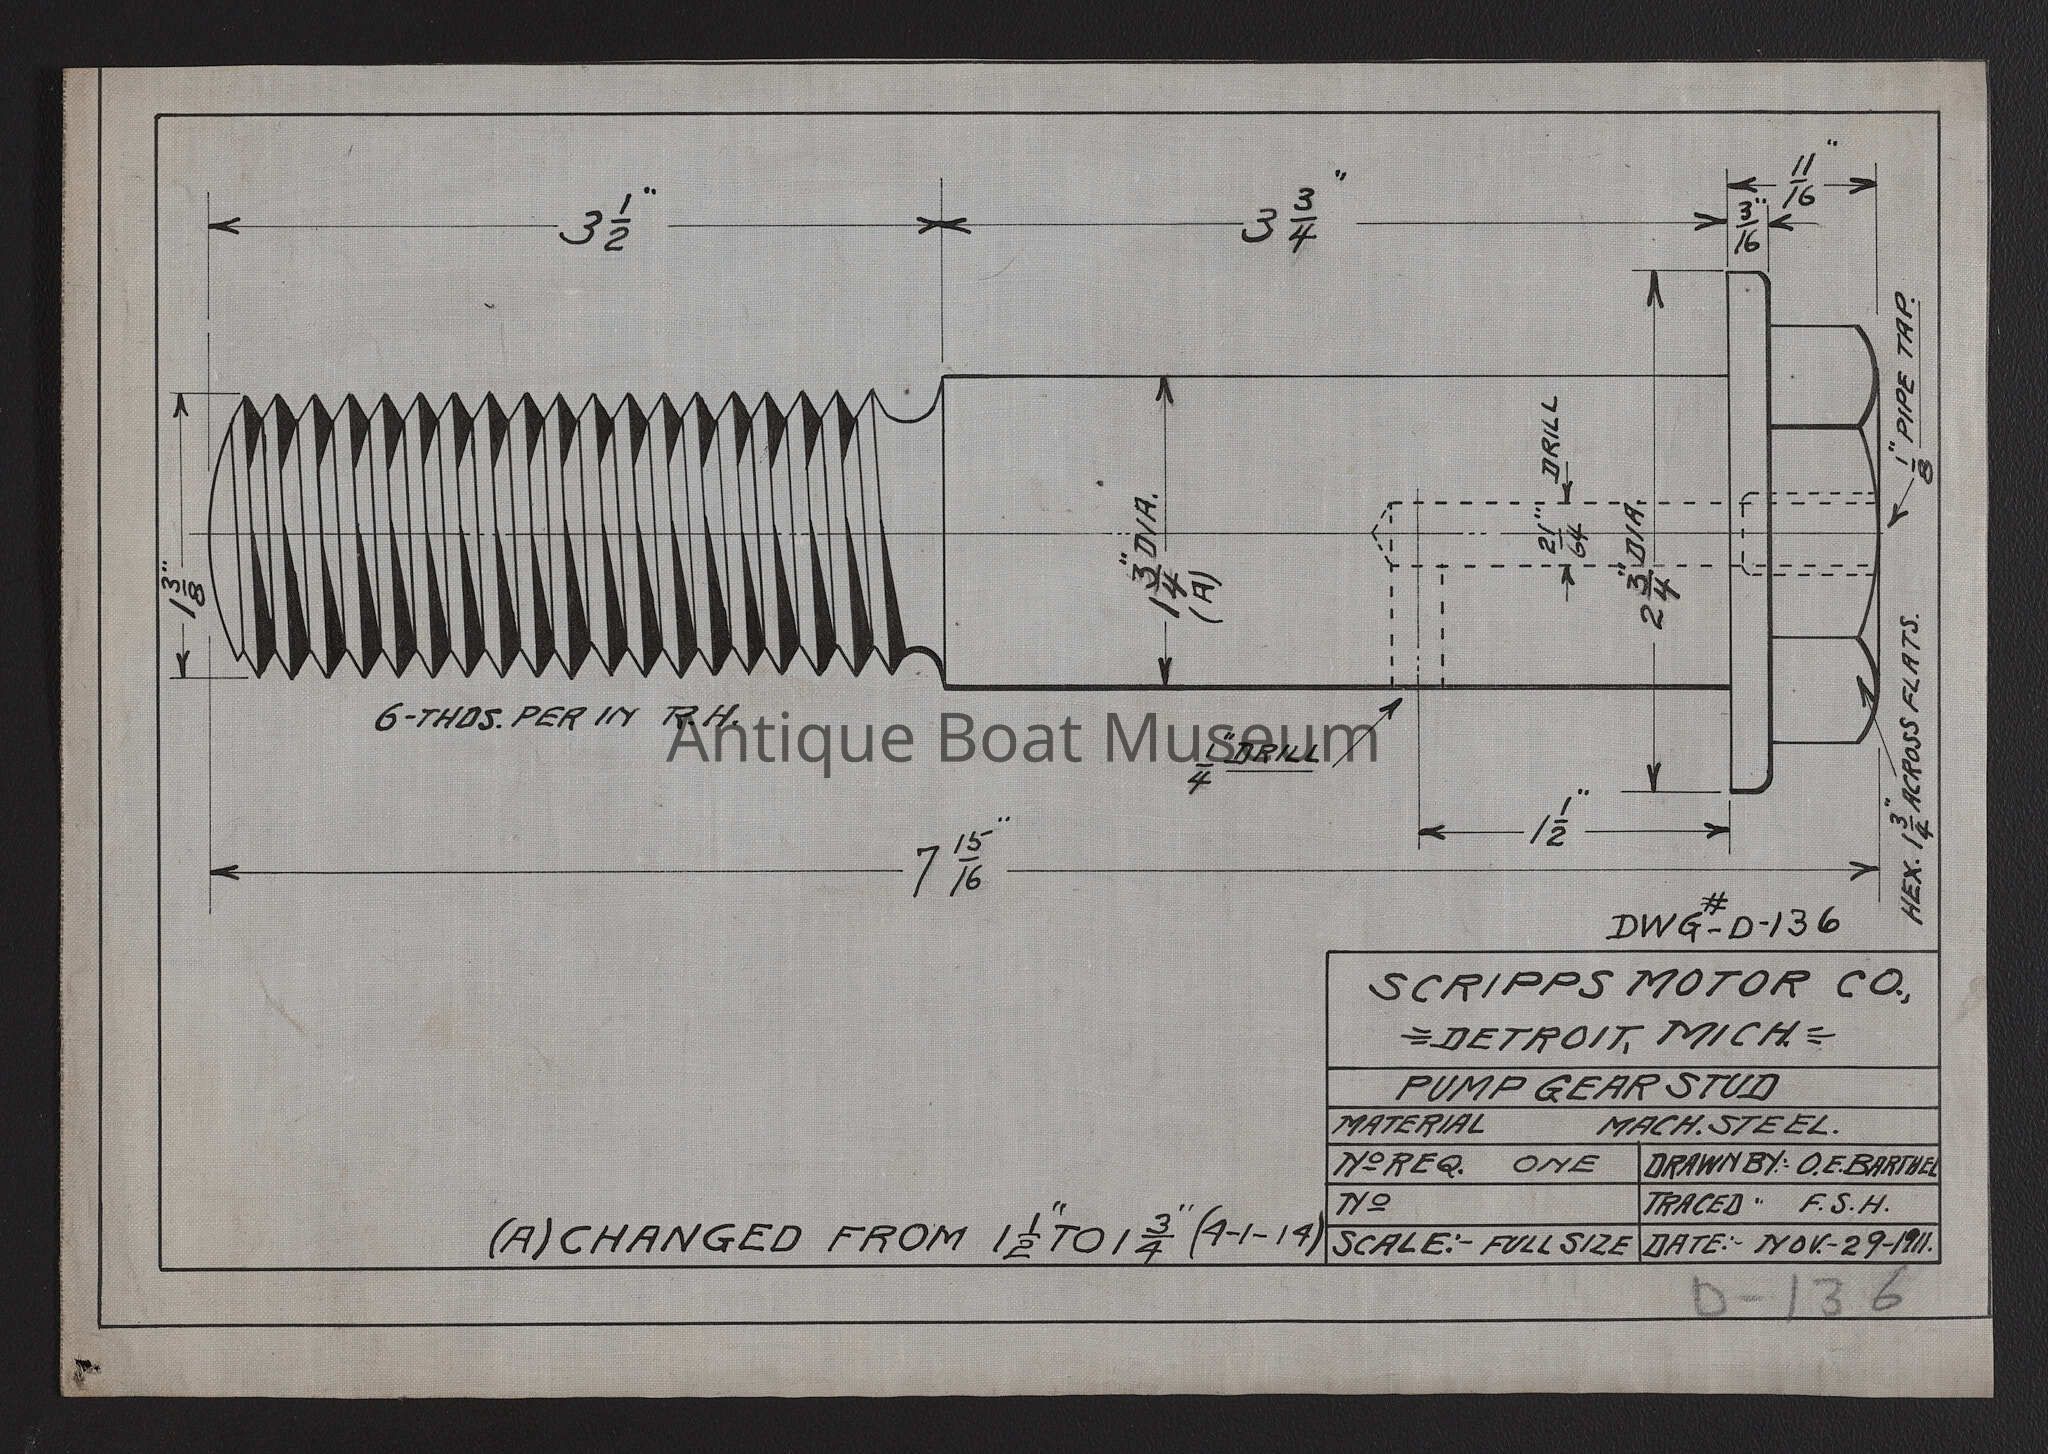 3 1/2"
3 3/4"
11/16"
3/16"
1 3/8"
1 3/4" DIA.
(A)
21/64" DRILL
2 3/4" DIA.
1/8" PIPE TAP.
HEX. 1 3/4" ACROSS FLATS.
6-THDS. PER IN R.H.
Antique Boat Museum
1/4" DRILL
1 1/2"
7 15/16"
DWG#-D-136
SCRIPPS MOTOR CO.,
=DETROIT, MICH.=
PUMP GEAR STUD
MATERIAL MACH. STEEL.
Nº REQ. ONE
DRAWN BY:- O.E. BARTHEL
Nº
TRACED " F.S.H.
SCALE:- FULL SIZE
DATE:- NOV.-29-1911.
(A) CHANGED FROM 1 1/2" TO 1 3/4" (4-1-14)
D-136